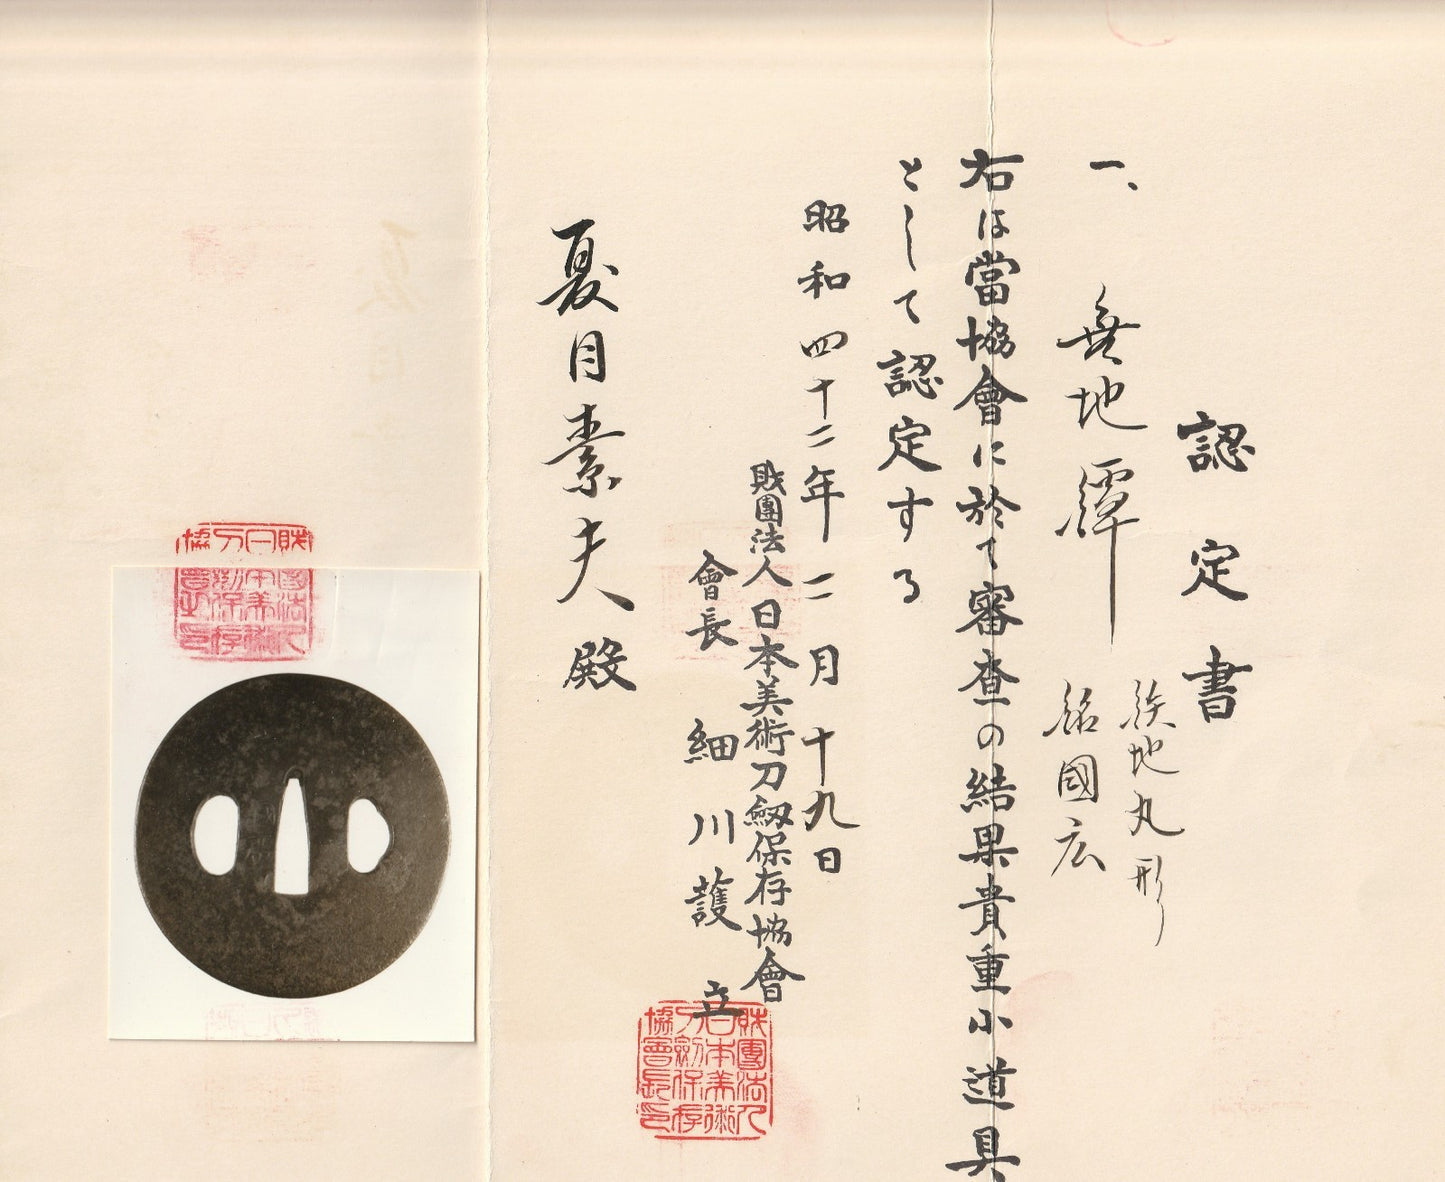 認定書
一、無地鐔
鉄地丸形
銘國広
右は當協會に於て審査の結果貴重小道具
として認定する
昭和四十二年二月十九日
財團法人日本美術刀劔保存協會
會長 細川護立
夏目素夫殿
財團法人日本美術刀劍保存協會長印